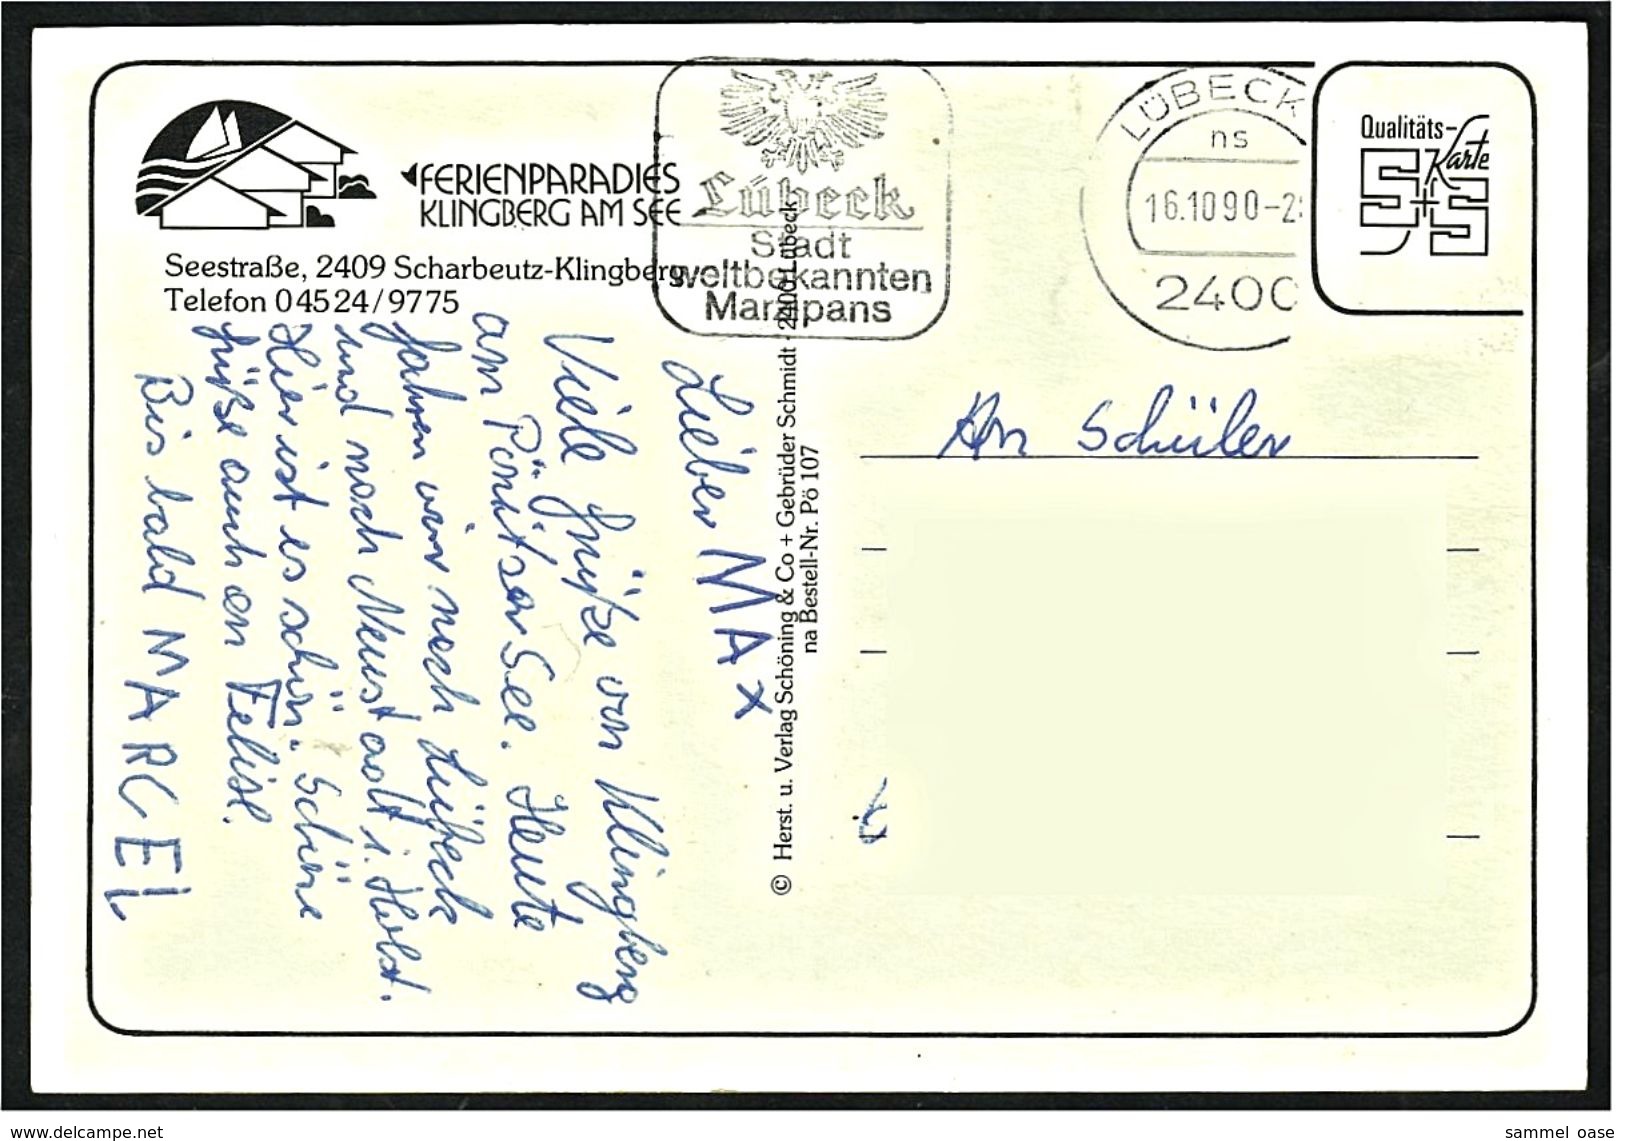 FERIENPARADIES
KLINGBERG AM SEE
Seestraße, 2409 Scharbeutz-Klingberg
Telefon 0 45 24 / 97 75
Lübeck
Stadt
weltbekannten
Marzipans
LÜBECK
ns
16.10 90-2
2400
Qualitäts-
Karte
S+S
An Schüler
Lieber MAX
Viele Grüße von Klingberg
am Pönitzer See. Heute
fahren wir nach Lübeck
und nach Neustadt i. Holst.
Hier ist es schön. Schöne
Grüße auch an
Bis bald MARCEL
© Herst. u. Verlag Schöning & Co + Gebrüder Schmidt · 2400 Lübeck
na Bestell-Nr. Pö 107
www.delcampe.net
sammel_oase